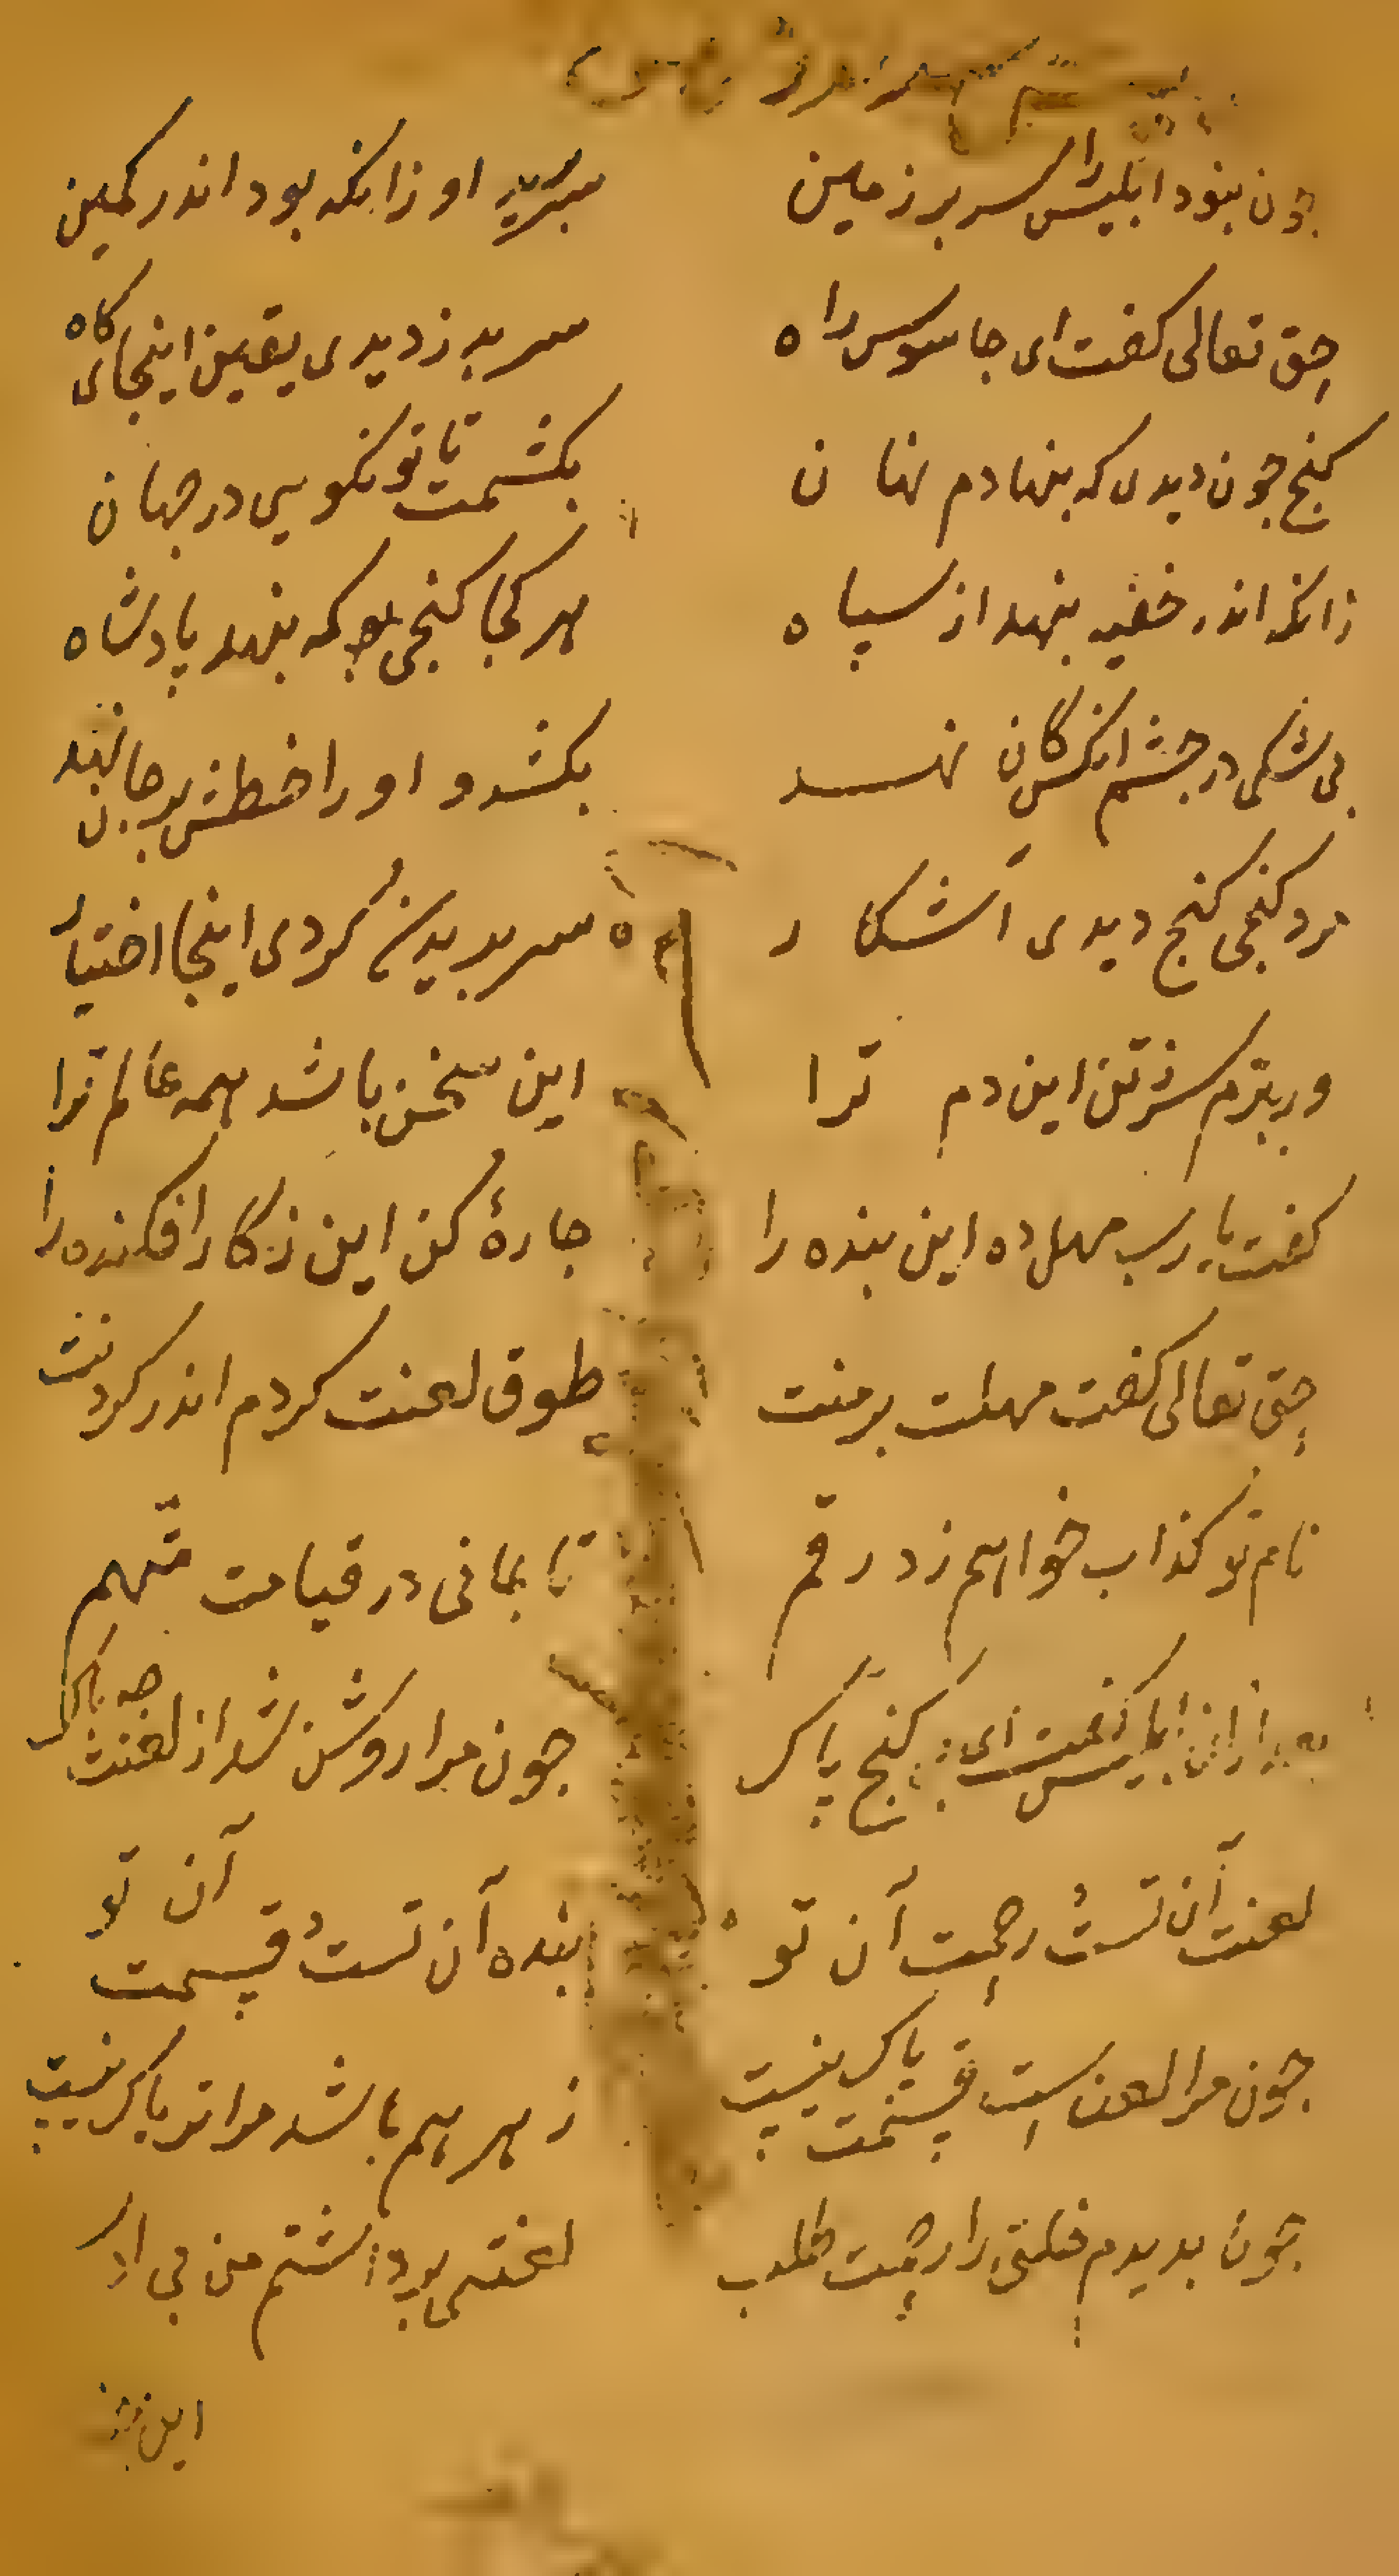 جون نبود ابلیس را سر بر زمین سر بدید او زانکه بود اندر کمین
حق تعالی کفت ای جاسوس راه سر بدزدیدی یقین اینجایکاه
کنج جون دیدی که بنهادم نهان بکشمت تا تو نکویی در جهان
زانکه اندر خفیه بنهد از سپاه هر کجا کنجی بود که بنهد پادشاه
بی شکی در جشم انکس کان نهد بکشد و او را خطش بر جان نهد
مرد کنجی کنج دیدی آشکار سر بریدن کردی اینجا اختیار
ور ببرم سر ز تن این دم ترا این سخن باشد همه عالم ترا
کفت یا رب مهل ده این بنده را جارۀ کن این ز کار افکنده را
حق تعالی کفت مهلت بر منت طوق لعنت کردم اندر کردنت
نام تو کذاب خواهم زد رقم تا بمانی در قیامت متهم
بعد ازان ابلیس کفت ای کنج پاک جون مرا روشن شد از لعنت چه باک
لعنت آن تست رحمت آن تو بنده آن تست قسمت آن تو
جون مرا لعن است قسمت باک نیست زهر هم باشد مرا تریاک نیست
جون بدیدم خلق را رحمت طلب لعنتی بر داشتم من بی ادب
این